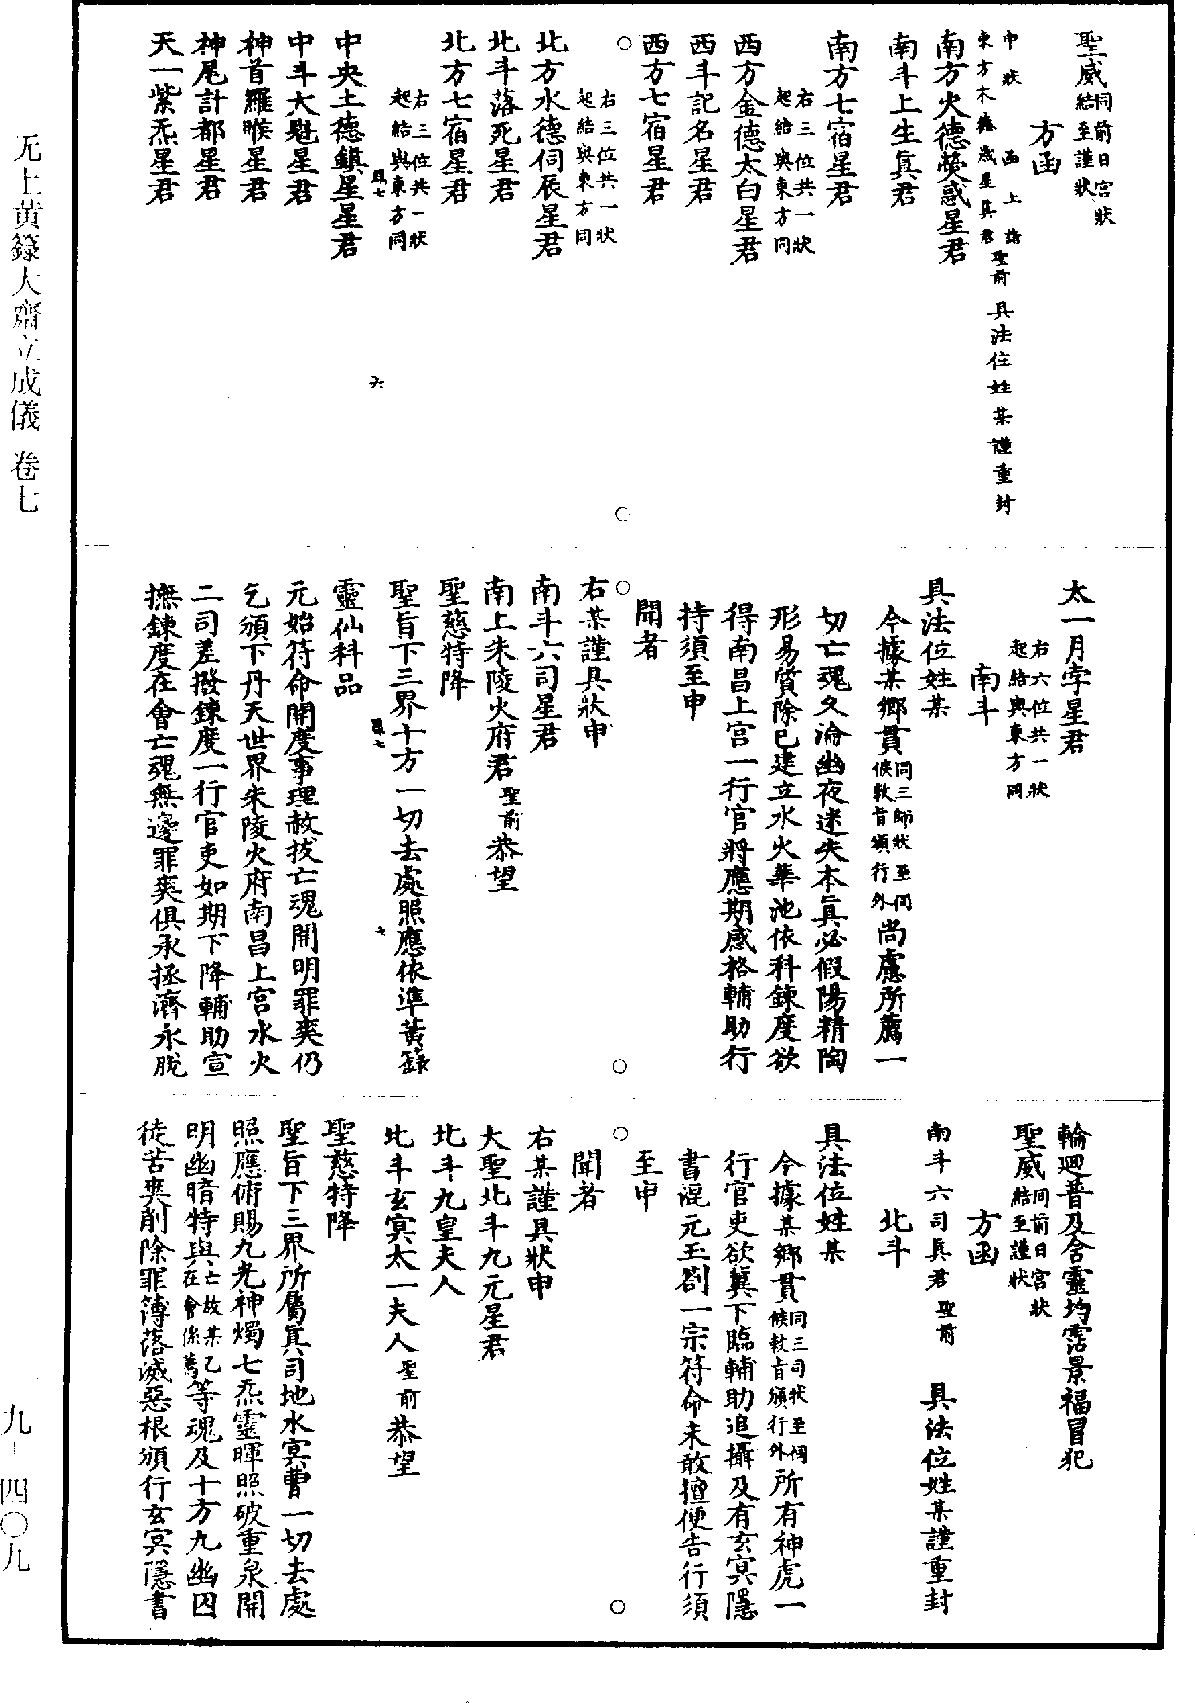 聖威同前日宮狀結至謹狀
方函
申狀　函上詣
東方木德歲星真君聖前　具法位姓某謹重封
南方火德熒惑星君
南斗上生真君
南方七宿星君
右三位共一狀
起結與東方同
西方金德太白星君
西斗記名星君
西方七宿星君
右三位共一狀
起結與東方同
北方水德伺辰星君
北斗落死星君
北方七宿星君
右三位共一狀
起結與東方同
中央土德鎮星星君
中斗大魁星君
神首羅睺星君
神尾計都星君
天一紫炁星君
六
太一月孛星君
右六位共一狀
起結與東方同
南斗
具法位姓某
今據某鄉貫同三師狀至伺候敕旨頒行外尚慮所薦一
切亡魂久淪幽夜迷失本真必假陽精陶
形易質除已建立水火華池依科鍊度欲
得南昌上宮一行官將應期感格輔助行
持須至申
聞者
右某謹具狀申
南斗六司星君
南上朱陵火府君聖前恭望
聖慈特降
聖旨下三界十方一切去處照應依準黃籙
七
靈仙科品
元始符命開度事理赦拔亡魂開明罪爽仍
乞頒下丹天世界朱陵火府南昌上宮水火
二司差撥鍊度一行官吏如期下降輔助宣
撫鍊度在會亡魂無邊罪爽俱承拯濟永脫
輪迴普及含靈均霑景福冒犯
聖威同前日宮狀結至謹狀
方函
南斗六司真君聖前　具法位姓某謹重封
北斗
具法位姓某
今據某鄉貫同三司狀至伺候敕旨頒行外所有神虎一
行官吏欲冀下臨輔助追攝及有玄冥隱
書混元玉劄一宗符命未敢擅便告行須
至申
聞者
右某謹具狀申
大聖北斗九元星君
北斗九皇夫人
北斗玄冥太一夫人聖前恭望
聖慈特降
聖旨下三界所屬真司地水冥曹一切去處
照應俯賜九光神燭七炁靈暉照破重泉開
明幽暗特與亡故某乙在會係薦等魂及十方九幽囚
徒苦爽削除罪簿落滅惡根頒行玄冥隱書
无上黃籙大齋立成儀　卷七
九-四〇九